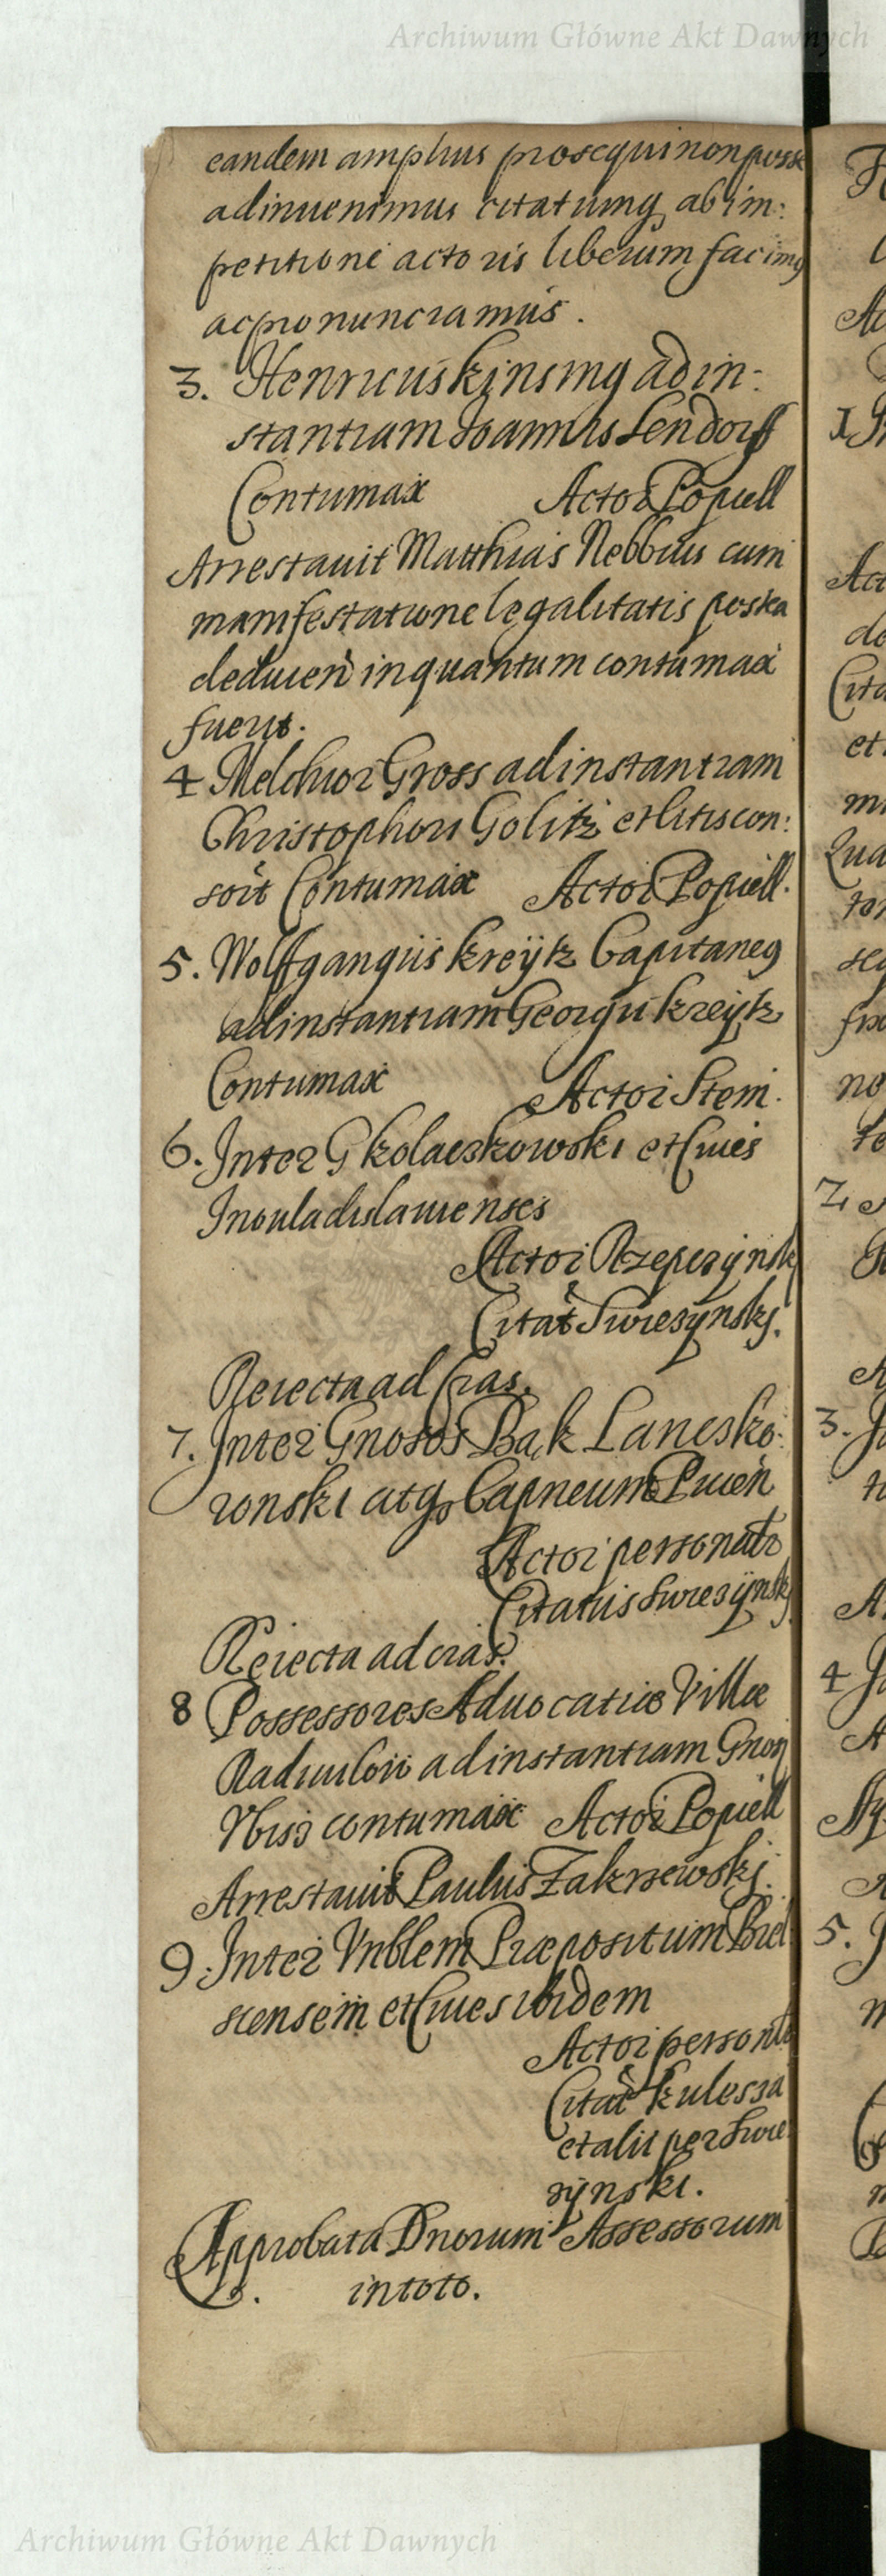 Archiwum Główne Akt Dawnych
eandem amplius prosequi non posse
adinuenimus citatumq ab im:
petitione actoris liberum facimq
ac pronunciamus.
3. Henricus kinsing ad in:
stantiam Joannis Lendorff
Contumax Actor Popiell
Arrestauit Matthias Nebbius cum
manifestatione legalitatis postea
deducen in quantum contumax
fuerit.
4 Melchior Gross ad instantiam
Christophori Golitz et litiscon:
sort Contumax Actor Popiell.
5. Wolffgangus kreÿtz Capitaneq
ad instantiam Georgii kreÿtz
Contumax Actor Stem.
6. Inter G kolaczkowski et Ciues
Inouladislauienses
Actor Rzepczynsk
Citat Swiezynskj.
Reiecta ad Cras.
7. Inter Gnosos Bąk Lancsko:
ronski atq Capneum
Actor personalr
Citatus Swiezÿnskj
Reiecta ad cras.
8 Possessores Aduocatiæ Villæ
ad instantiam Gnosi
contumax Actor Popiell
Arrestauit Paulus Zakrzewskj.
9. Inter Vnblem Præpositum Biel
scensem et Ciues ibidem
Actor personlr
Citat kulessa
et alii per Swie
zÿnski.
Approbata Dnorum Assessorum
in toto.
Archiwum Główne Akt Dawnych